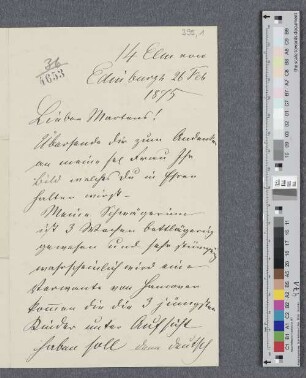 292,1
4653
14 Elm row
Edinburgh 26 Feb
1875
Lieber Martens!
Übersende dir zum Andenken
an meine sel Frau Ihr
Bild welches du in Ehren
halten wirst.
Meine Schwägerinn
ist 3 Wochen bettlägerig
gewesen und sehr
wahrscheinlich wird eine
von Hanover
kommen die die 3 jüngsten
Kinder unter Aufsicht
haben soll denn deutsch